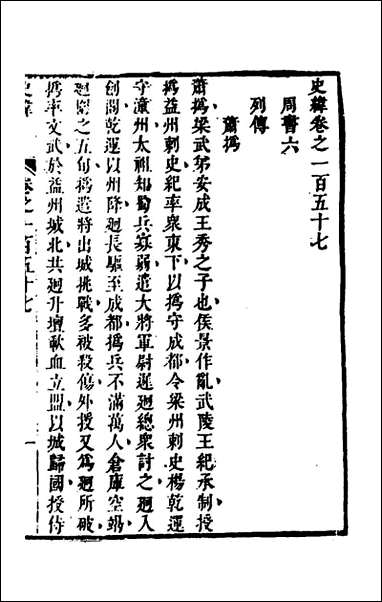 史緯卷之一百五十七
周書六
列傳
蕭撝
蕭撝梁武弟安成王秀之子也侯景作亂武陵王紀承制授
撝益州刺史紀率衆東下以撝守成都令梁州刺史楊乾運
守潼州太祖知蜀兵寡弱遣大將軍尉遲迥總衆討之迥入
劍閣乾運以州降迥長驅至成都撝兵不滿萬人倉庫空竭
迥圍之五旬撝遣將出城挑戰多被殺傷外援又爲迥所破
撝率文武於益州城北共迥升壇歃血立盟以城歸國授侍
史緯
卷之一百五十七
一